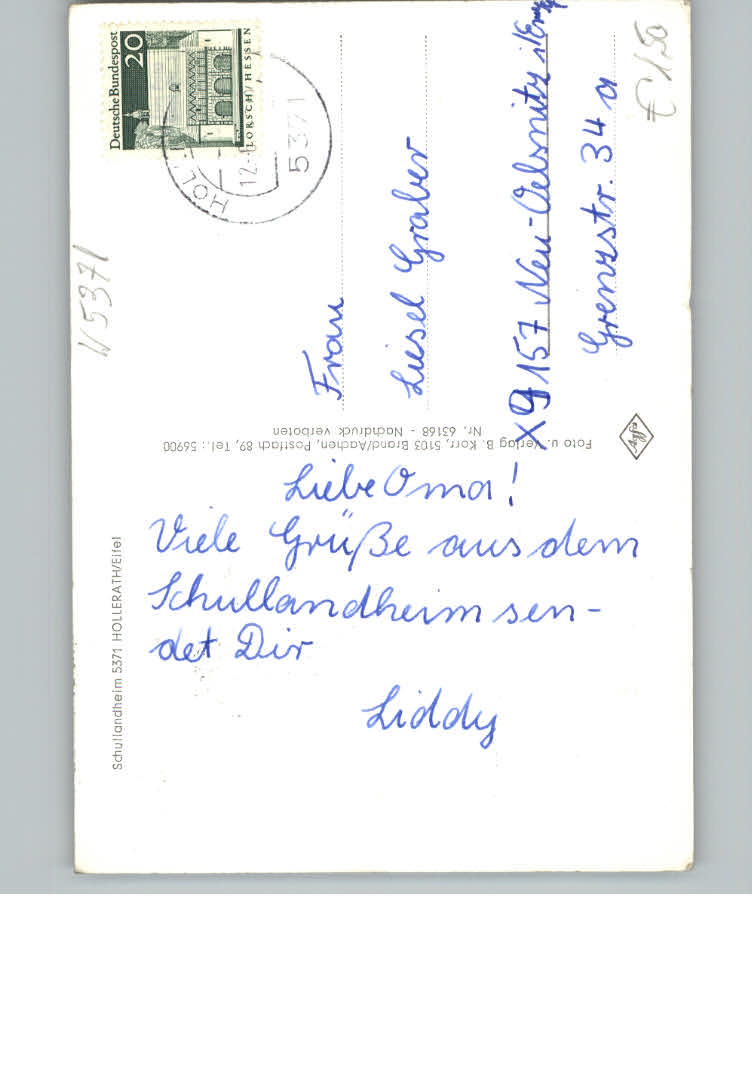 Deutsche Bundespost
20
LORSCH/HESSEN
HOLL
12.
5371
€ 1,50
W5371
Frau
Liesel Graber
X9157 Neu-Oelsnitz i/Erzg
Grenzstr. 34 a
Foto u. Verlag B. Korr, 5103 Brand/Aachen, Postfach 89, Tel.: 56900
Nr. 63168 - Nachdruck verboten
Agfa
Schullandheim 5371 HOLLERATH/Eifel
Liebe Oma!
Viele Grüße aus dem
Schullandheim sen-
det Dir
Liddy